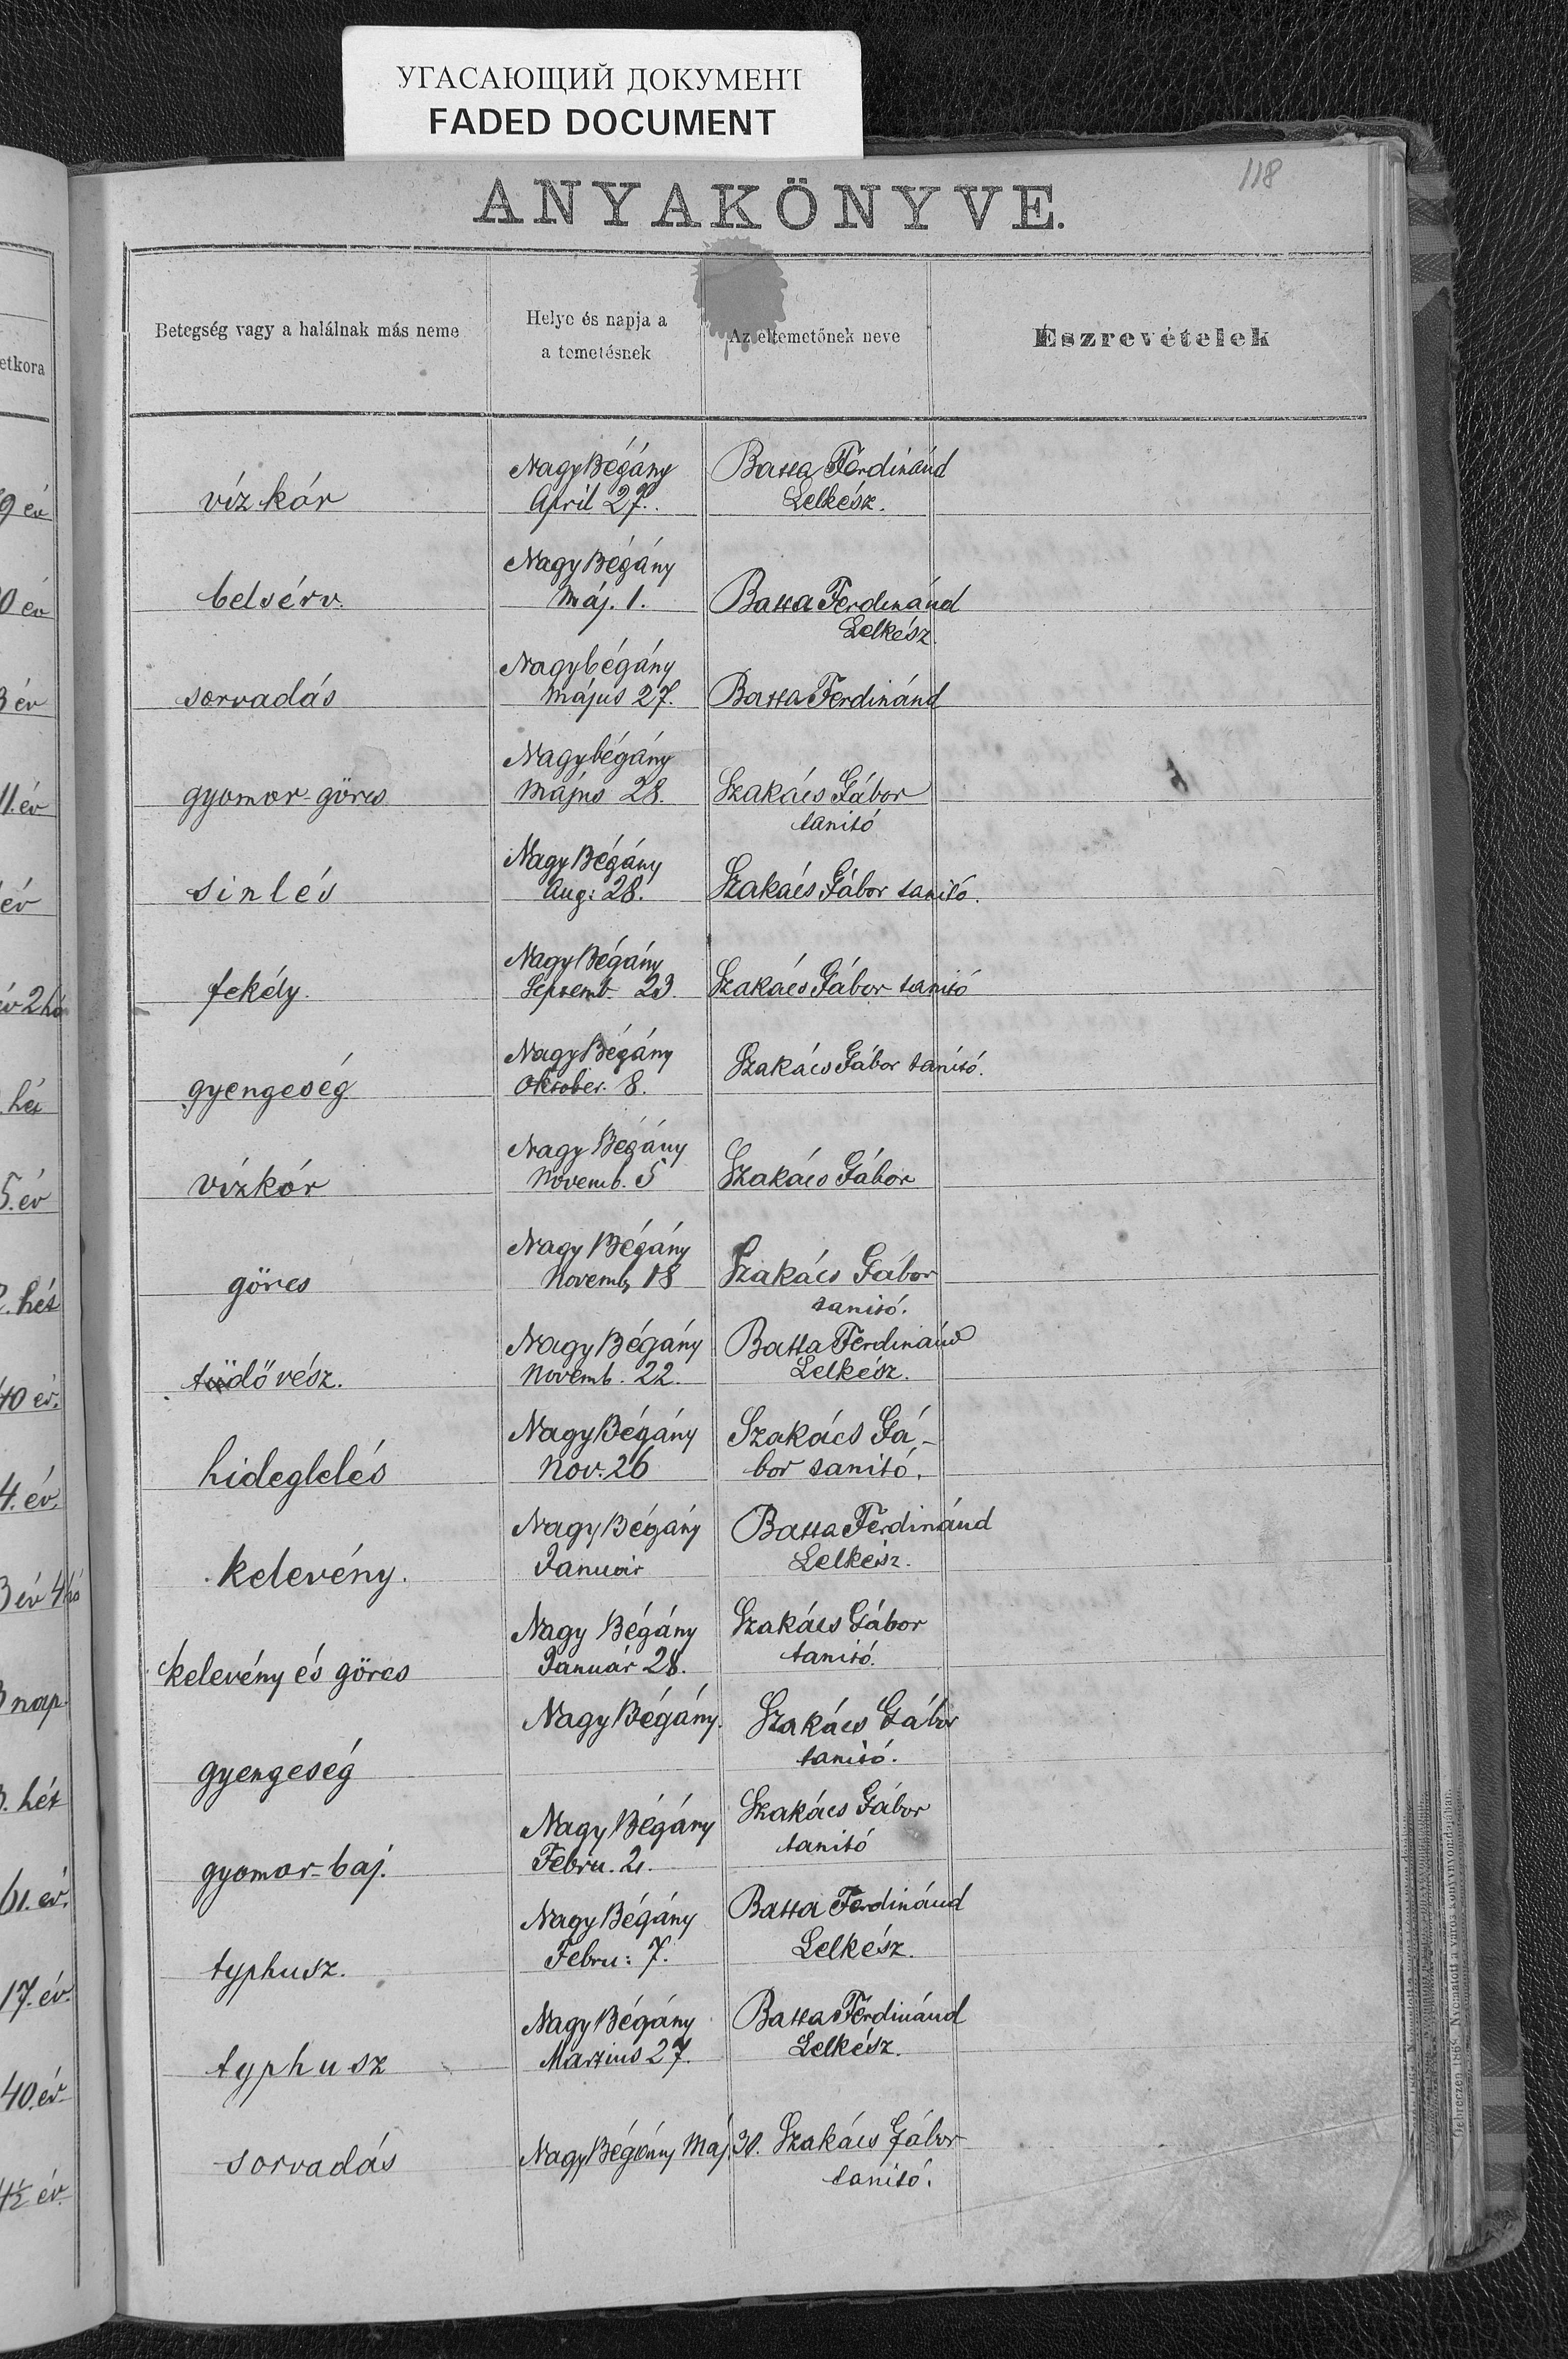 УГАСАЮЩИЙ ДОКУМЕНТ
FADED DOCUMENT
118
ANYAKÖNYVE.
etkora
Betegség vagy a halálnak más neme
Helye és napja a
a temetésnek
Az eltemetőnek neve
Észrevételek
9 év
vízkór
Nagy Bégány
April 27.
Batta Ferdinánd
Lelkész.
0 év
belsérv.
Nagy Bégány
Máj. 1.
Batta Ferdinánd
Lelkész.
3 év
sorvadás
Nagybégány
Május 27.
Batta Ferdinánd
11. év
gyomor-görcs
Nagybégány
Május 28.
Szakács Gábor
tanitó
év
sinlés
Nagy Bégány
Aug: 28.
Szakács Gábor tanitó.
év 2 hó
fekély.
Nagy Bégány
Septemb. 23.
Szakács Gábor tanitó
hét
gyengeség
Nagy Bégány
Oktober. 8.
Szakács Gábor tanitó.
5. év
vízkór
Nagy Bégány
Novemb. 5
Szakács Gábor
2. hét
görcs
Nagy Bégány
Novemb 18
Szakács Gábor
tanitó.
40 év.
tüdővész.
Nagy Bégány
Novemb. 22.
Batta Ferdinánd
Lelkész.
4. év.
hideglelés
Nagy Bégány
Nov. 26
Szakács Gá-
bor tanitó.
3 év 4 hó
kelevény.
Nagy Bégány
Január
Batta Ferdinánd
Lelkész.
3 nap.
kelevény és görcs
Nagy Bégány
Január 28.
Szakács Gábor
tanitó.
3. hét
gyengeség
Nagy Bégány.
Szakács Gábor
tanitó.
61. év.
gyomor-baj.
Nagy Bégány
Febru. 2.
Szakács Gábor
tanitó
17. év.
typhusz.
Nagy Bégány
Febru: 7.
Batta Ferdinánd
Lelkész.
40. év
typhusz
Nagy Bégány
Martius 27.
Batta Ferdinánd
Lelkész.
4½ év.
sorvadás
Nagy Bégány Máj. 30.
Szakács Gábor
tanitó.
Debreczen 1868. Nyomatott a város könyvnyomdájában.